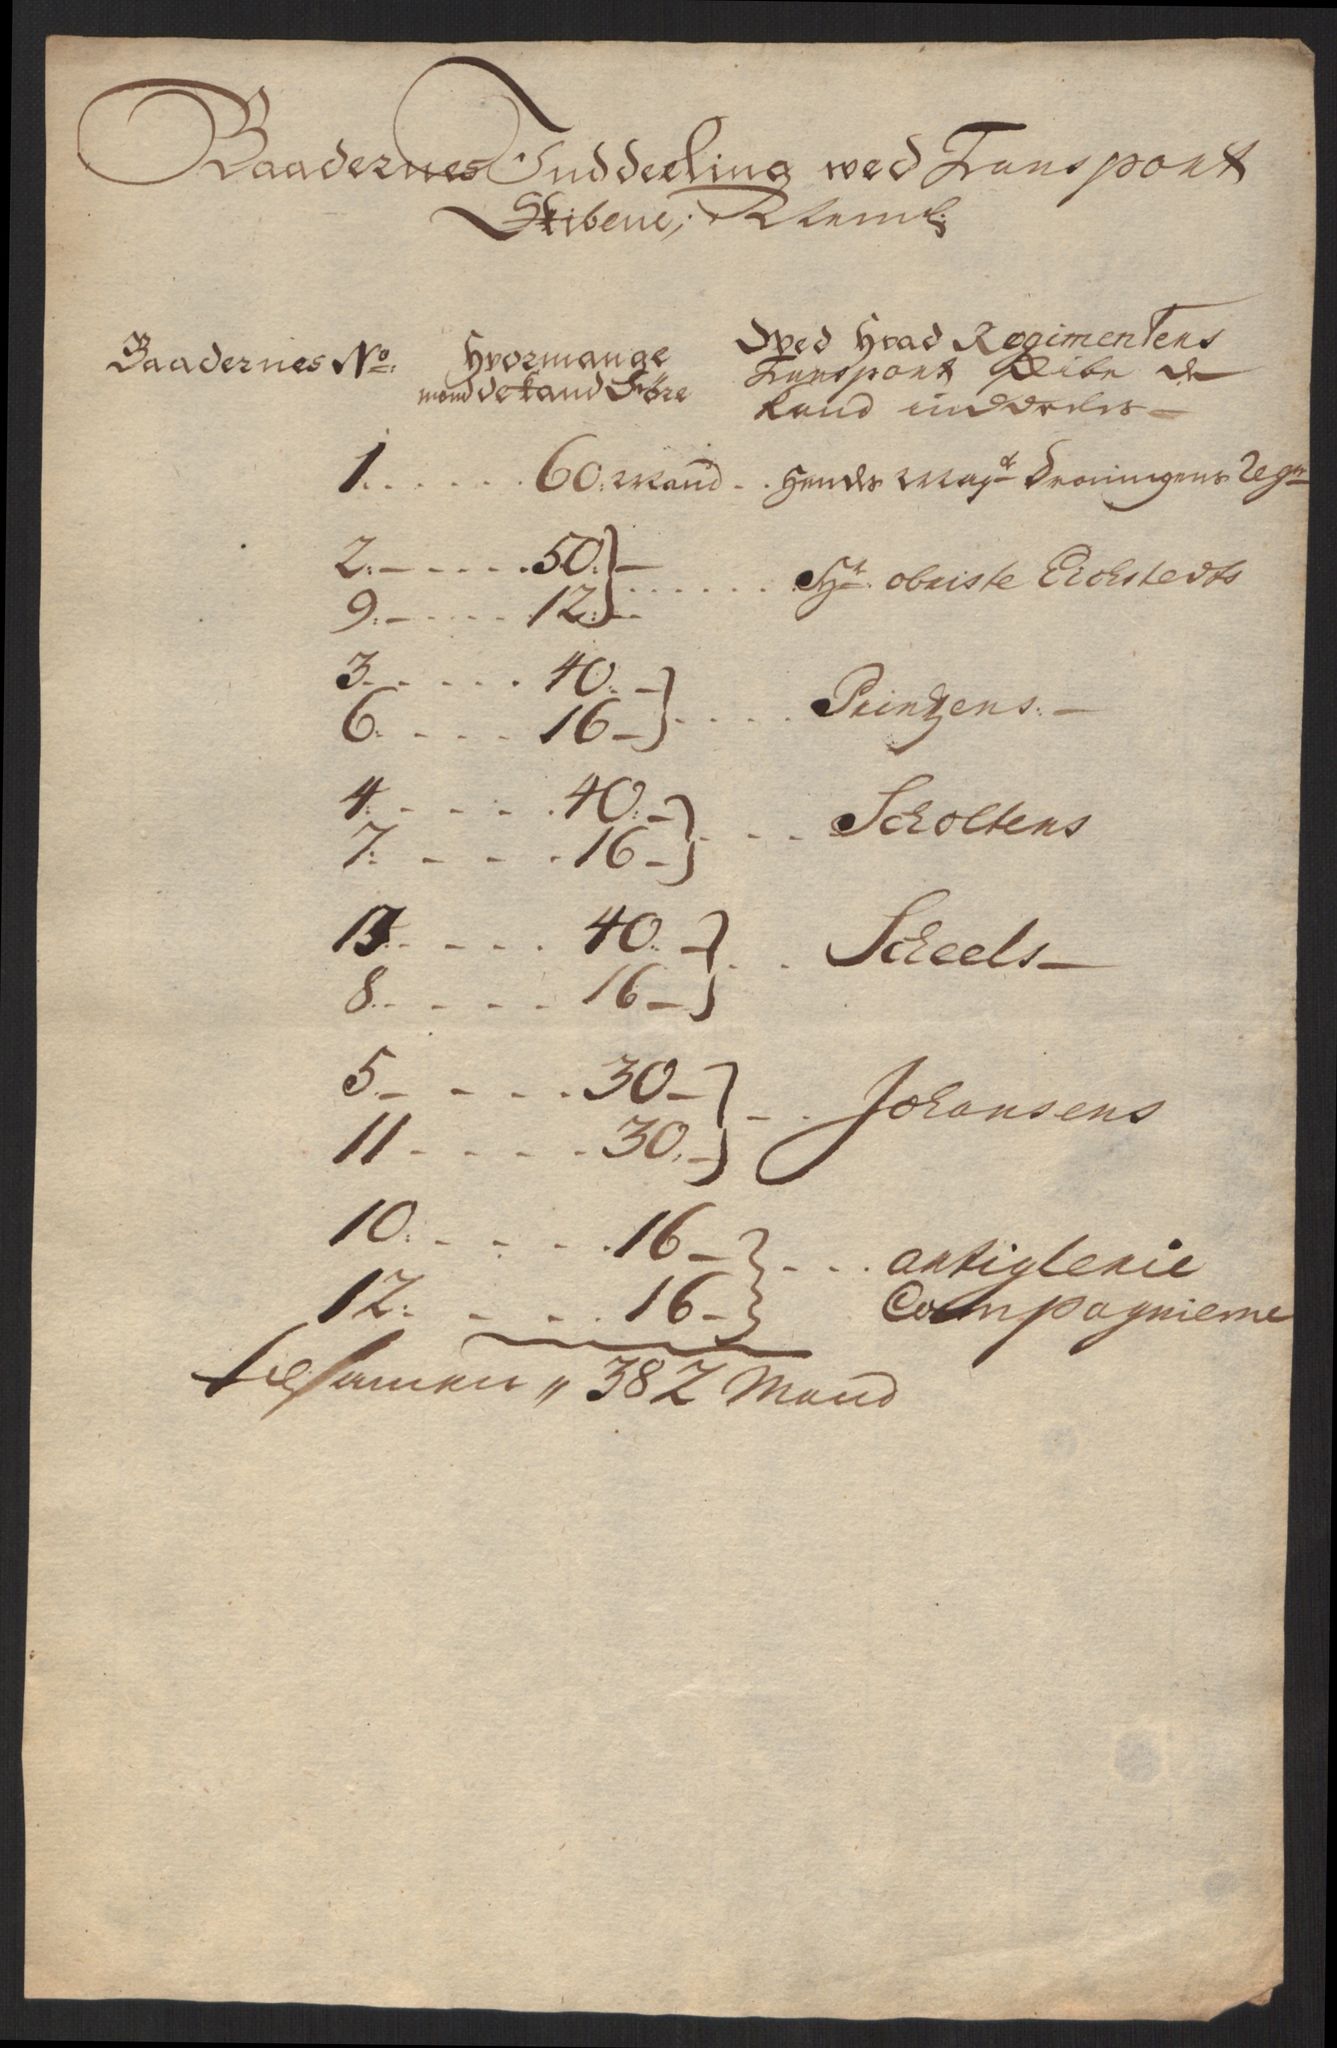 Baadernes Inddeeling wed Transport
Skibene, Neml:
Baadernes No: Hvormange mand de kand Före Wed Hvad Regimentens Transport Skibe de kand inddeeles
1. 60. Mand Hendes Mayt Dronningens Regm
2. 50.
9. 12. Hr obriste Eickstedts
3. 40.
6. 16 Printzens.
4. 40.
7. 16 Scholtens
13. 40.
8. 16 Scheels
5. 30
11 30. Johansens
10. 16
12. 16 artiglerie Compagnierne
Tilsamen 382 Mand